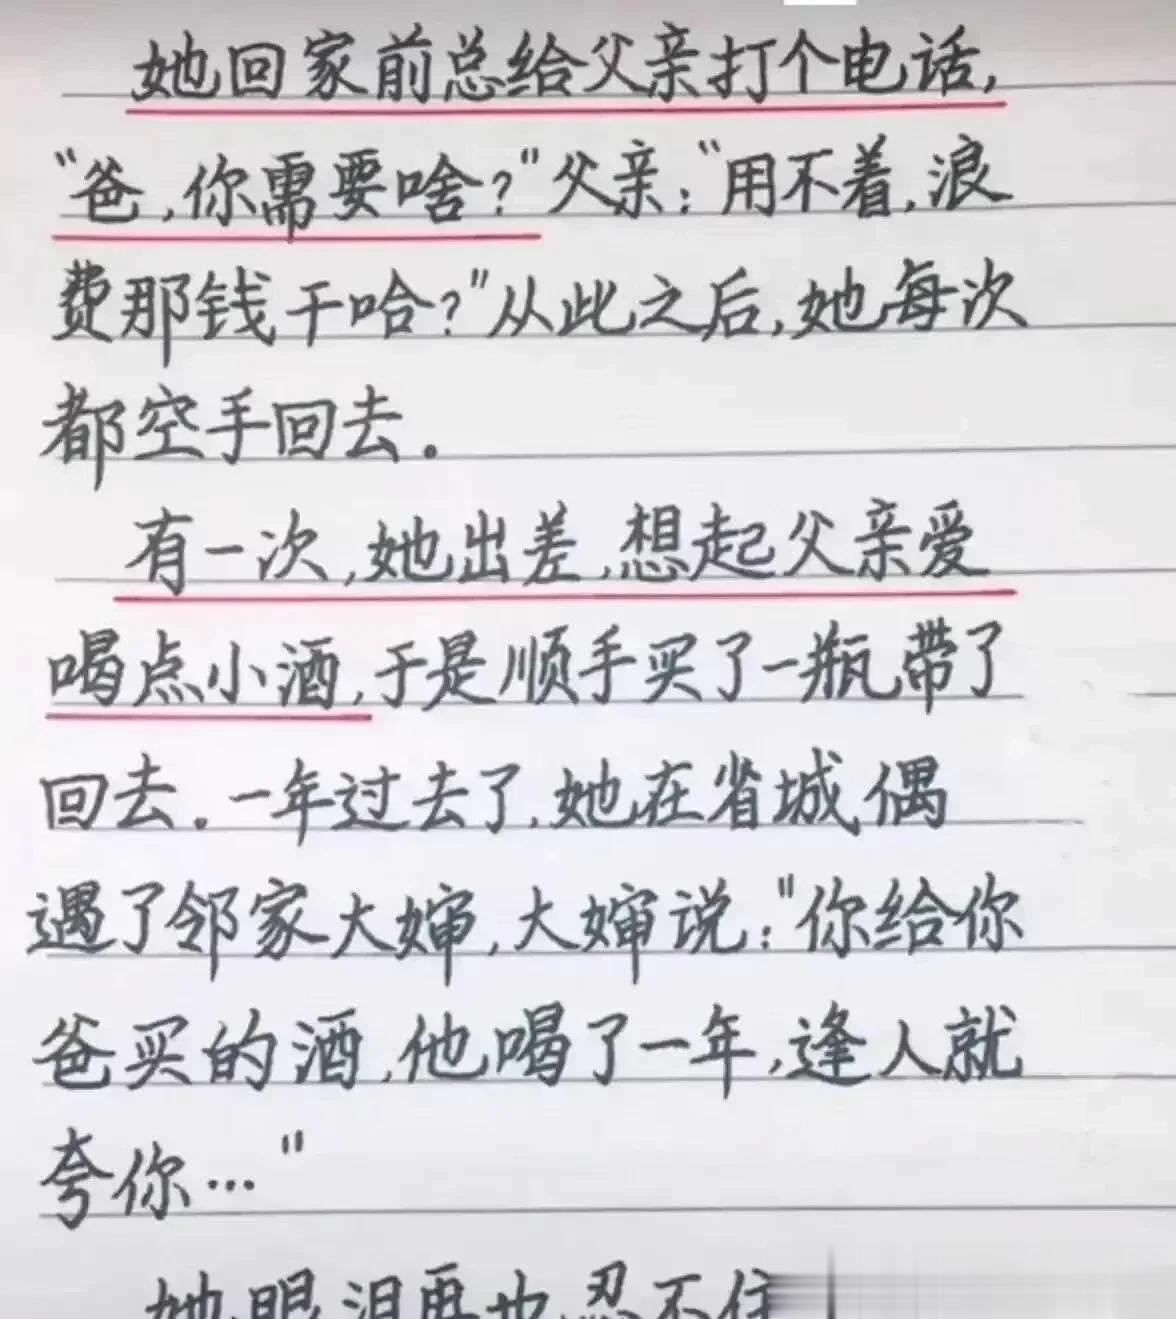 她回家前总给父亲打个电话,
“爸,你需要啥?”父亲:“用不着,浪
费那钱干哈?”从此之后,她每次
都空手回去。
有一次,她出差,想起父亲爱
喝点小酒,于是顺手买了一瓶带了
回去。一年过去了,她在省城偶
遇了邻家大婶,大婶说:“你给你
爸买的酒,他喝了一年,逢人就
夸你…”
她眼泪再也忍不住